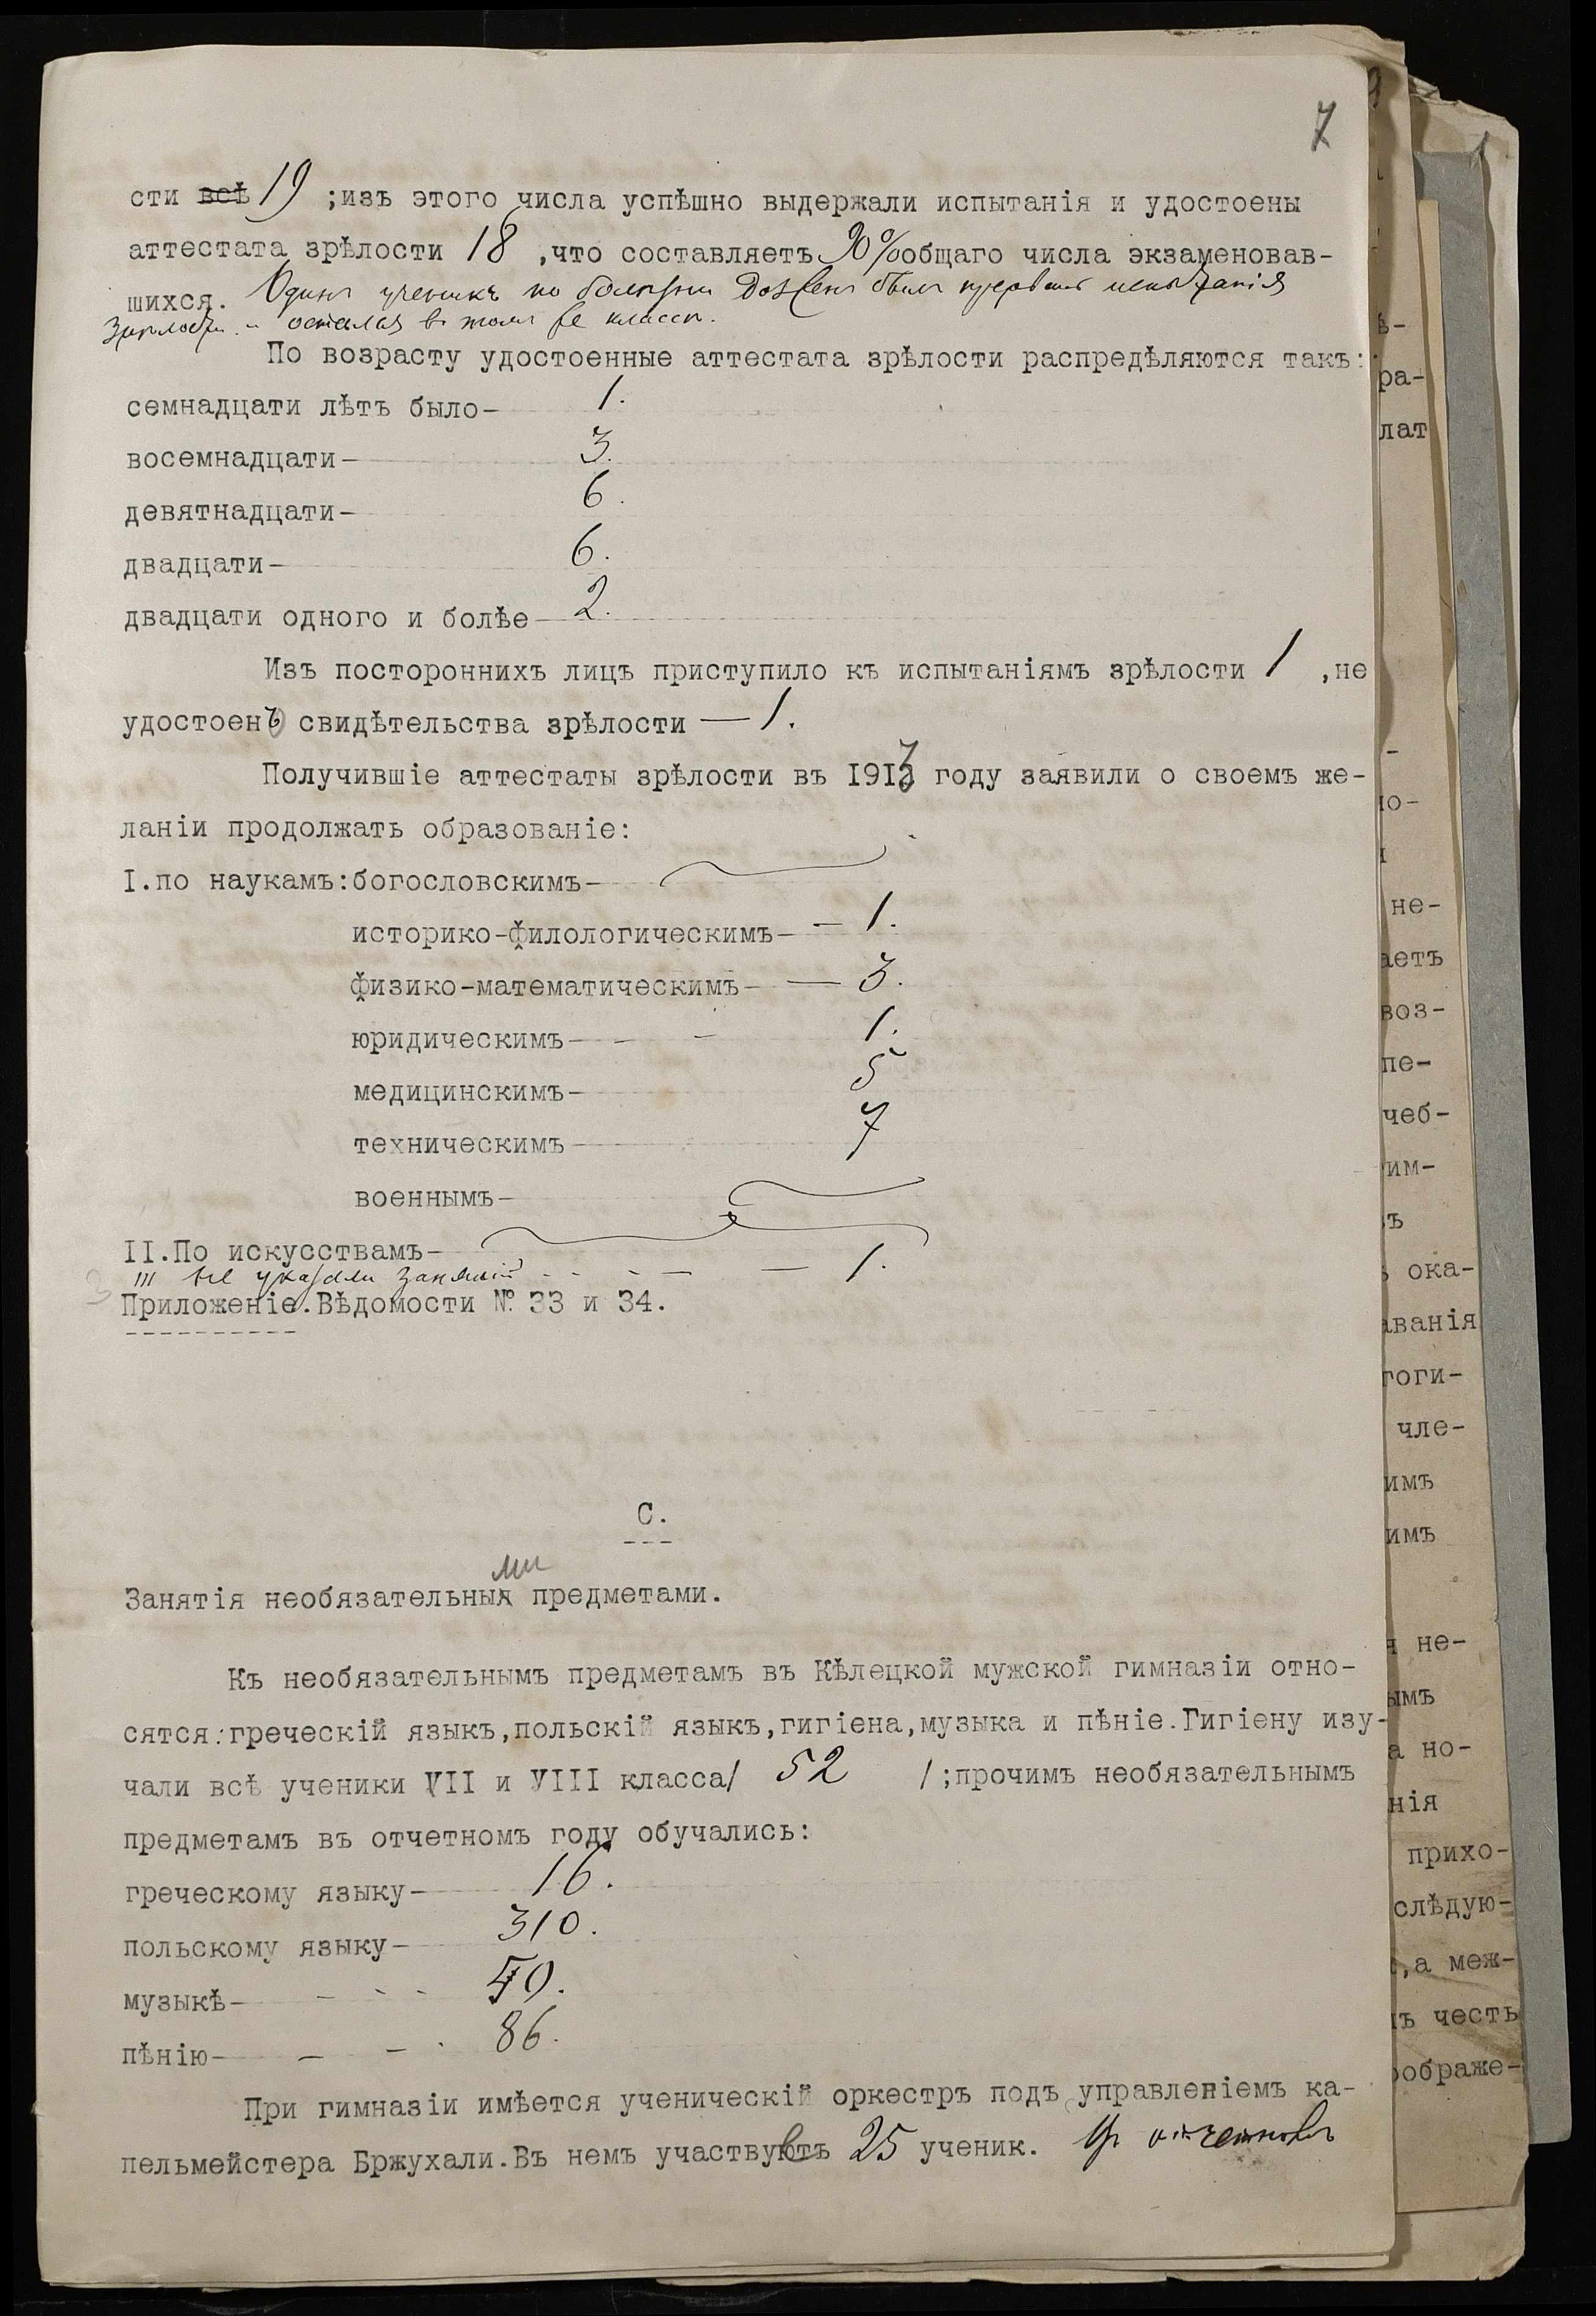 7
сти всѣ 19 ;изъ этого числа успѣшно выдержали испытанія и удостоены
аттестата зрѣлости 18 ,что составляетъ 90% общаго числа экзаменовав-
шихся. Одинъ ученикъ по болѣзни долженъ былъ прервать испытанія
зрѣлости и остался въ томъ же классѣ.
По возрасту удостоенные аттестата зрѣлости распредѣляются такъ:
семнадцати лѣтъ было- 1.
восемнадцати- 3.
девятнадцати- 6.
двадцати- 6.
двадцати одного и болѣе- 2.
Изъ постороннихъ лицъ приступило къ испытаніямъ зрѣлости 1 ,не
удостоенъ свидѣтельства зрѣлости — 1.
Получившіе аттестаты зрѣлости въ 1913 году заявили о своемъ же-
ланіи продолжать образованіе:
I.по наукамъ:богословскимъ-
историко-филологическимъ- — 1.
физико-математическимъ- — 3.
юридическимъ- - - 1.
медицинскимъ- 5
техническимъ- 7
военнымъ-
II.По искусствамъ-
III не указали занятій - - - — — 1.
Приложеніе.Вѣдомости № 33 и 34.
С.
ми
Занятія необязательныя предметами.
Къ необязательнымъ предметамъ въ Кѣлецкой мужской гимназіи отно-
сятся:греческій языкъ,польскій языкъ,гигіена,музыка и пѣніе.Гигіену изу-
чали всѣ ученики VII и VIII класса/ 52 /;прочимъ необязательнымъ
предметамъ въ отчетномъ году обучались:
греческому языку- 16.
польскому языку- 310.
музыкѣ- - - - 40.
пѣнію- — - . 86.
При гимназіи имѣется ученическій оркестръ подъ управленіемъ ка-
пельмейстера Бржухали.Въ немъ участвуютъ 25 ученик.
ра-
лат
но-
не-
аетъ
воз-
пе-
чеб-
им-
ъ
ока-
ванія
гоги-
чле-
имъ
имъ
не-
ымъ
а но-
нія
прихо-
слѣдую-
,а меж-
ъ честь
ображе-